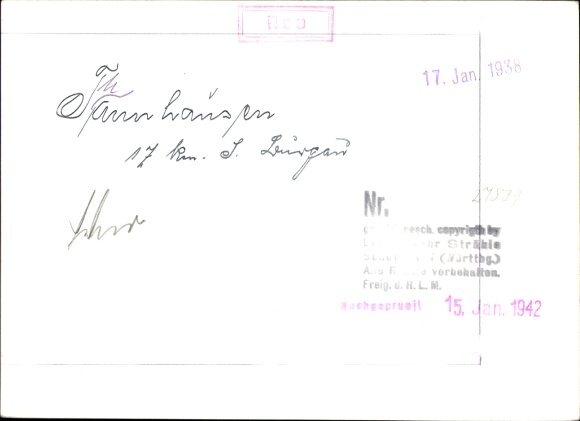 Neu
17. Jan. 1938
Th
Tannhausen
17 km. S. Burgau
Nr. 21879
gesch. copyrigth by
Strähle
(Württbg.)
vorbehalten.
Freig. d. R. L. M.
Nachgeprueft 15. Jan. 1942